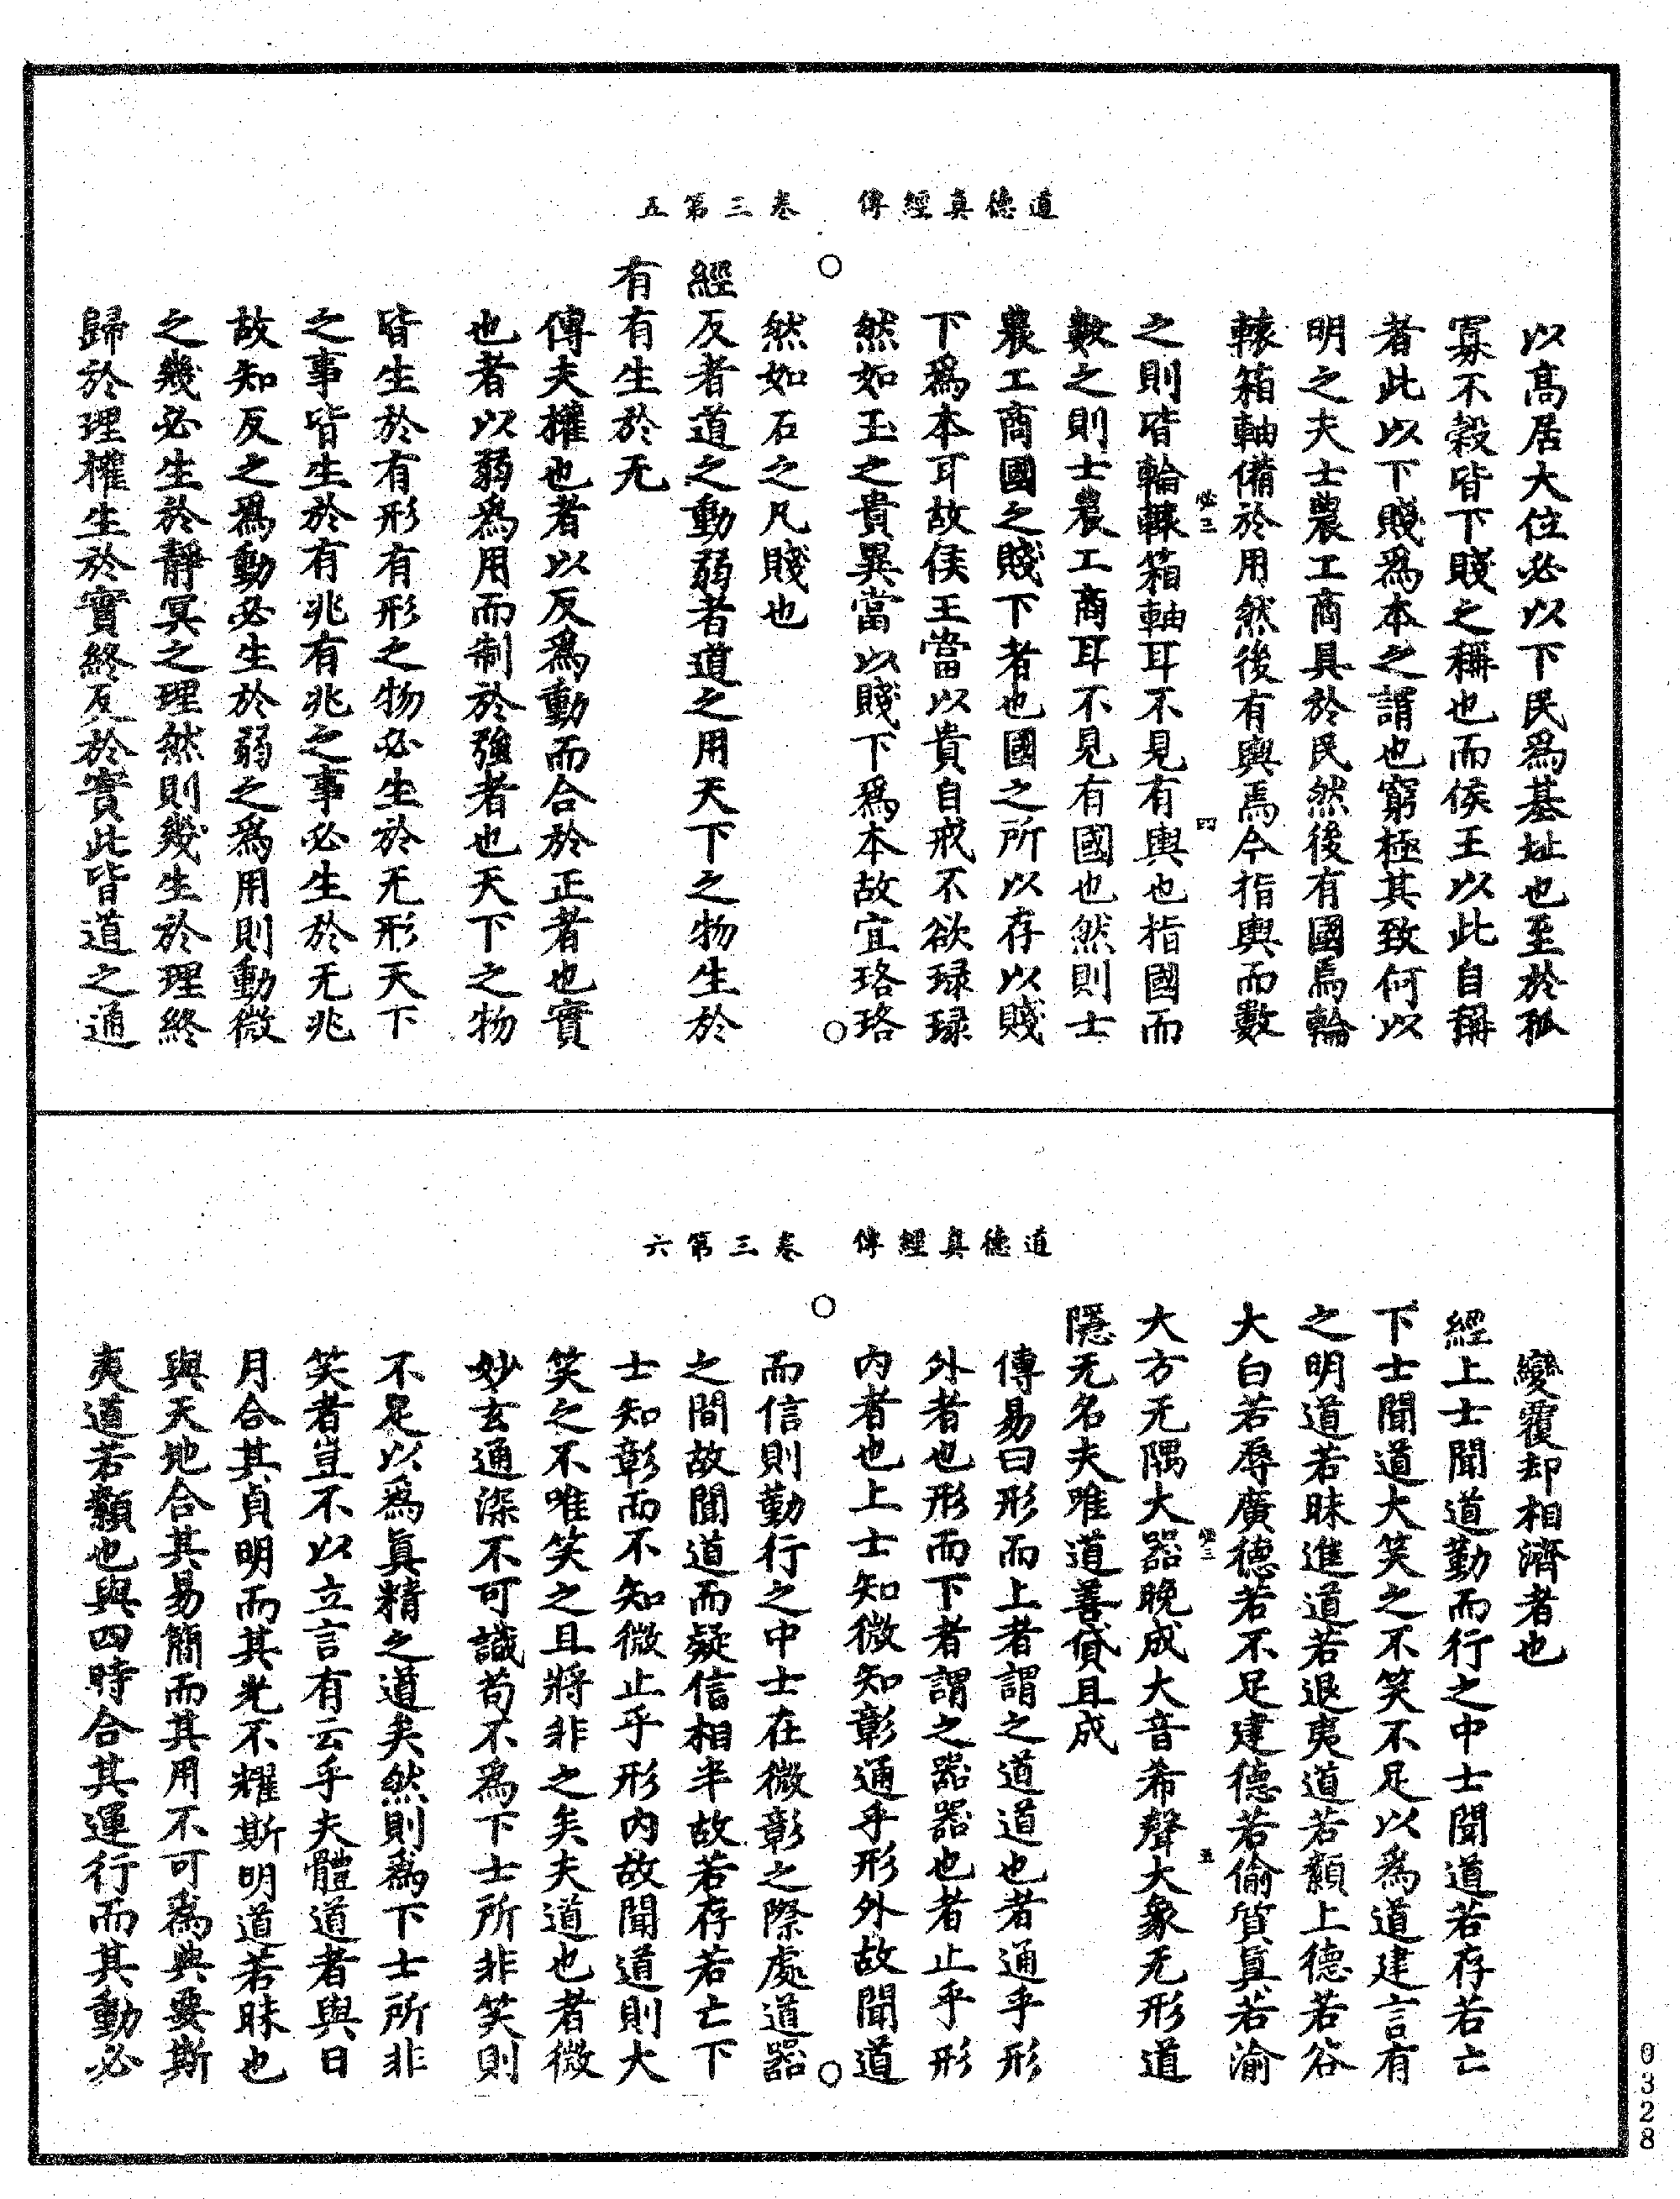 道德真經傳　卷三第五
以高居大位必以下民爲基址也至於孤
寡不穀皆下賤之稱也而侯王以此自稱
者此以下賤爲本之謂也窮極其致何以
明之夫士農工商具於民然後有國焉輪
轅箱軸備於用然後有輿焉今指輿而數
之則皆輪轅箱軸耳不見有輿也指國而
數之則士農工商耳不見有國也然則士
農工商國之賤下者也國之所以存以賤
下爲本耳故侯王當以貴自戒不欲琭琭
然如玉之貴異當以賤下爲本故宜珞珞
然如石之凡賤也
經反者道之動弱者道之用天下之物生於
有有生於无
傳夫權也者以反爲動而合於正者也實
也者以弱爲用而制於強者也天下之物
皆生於有形有形之物必生於无形天下
之事皆生於有兆有兆之事必生於无兆
故知反之爲動必生於弱之爲用則動微
之幾必生於靜冥之理然則幾生於理終
歸於理權生於實終反於實此皆道之通
道德真經傳　卷三第六
變覆却相濟者也
經上士聞道勤而行之中士聞道若存若亡
下士聞道大笑之不笑不足以爲道建言有
之明道若昧進道若退夷道若纇上德若谷
大白若辱廣德若不足建德若偷質真若渝
大方无隅大器晚成大音希聲大象无形道
隱无名夫唯道善貸且成
傳易曰形而上者謂之道道也者通乎形
外者也形而下者謂之器器也者止乎形
内者也上士知微知彰通乎形外故聞道
而信則勤行之中士在微彰之際處道器
之間故聞道而疑信相半故若存若亡下
士知彰而不知微止乎形内故聞道則大
笑之不唯笑之且將非之矣夫道也者微
妙玄通深不可識苟不爲下士所非笑則
不足以爲真精之道矣然則爲下士所非
笑者豈不以立言有云乎夫體道者與日
月合其貞明而其光不耀斯明道若昧也
與天地合其易簡而其用不可爲典要斯
夷道若纇也與四時合其運行而其動必
0328